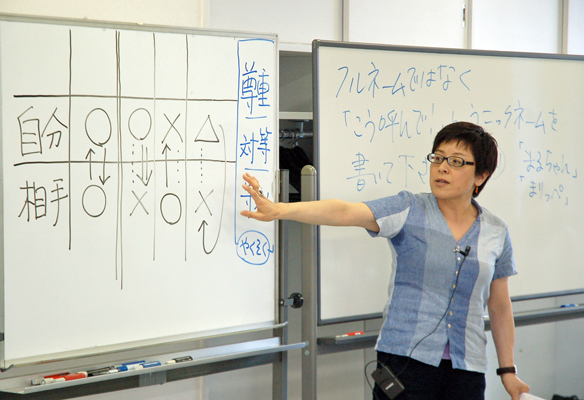 自分 〇 〇 × △
相手 〇 × 〇 ×
尊重
対等
やくそく
フルネームではなく
「こう呼んで」というニックネームを
書いて下さ
「まるちゃん」
「まりっぺ」